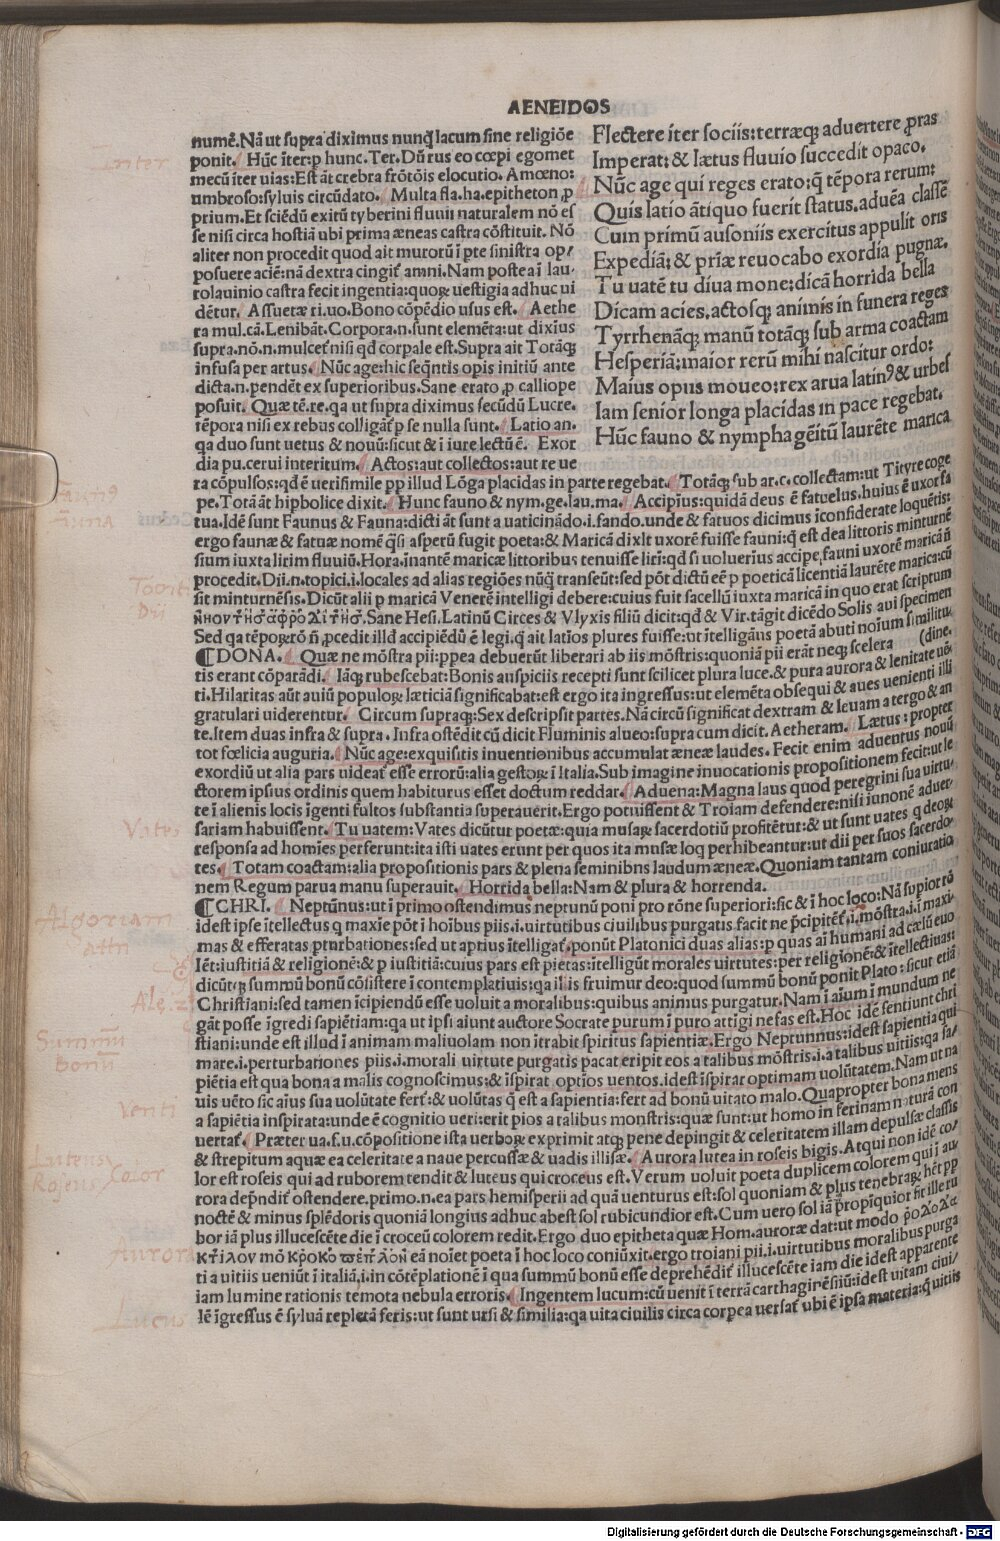 AENEIDOS
numē. Nā ut supra diximus nunq̄ lacum sine religiōe
ponit. Hūc īter: p hunc. Ter. Dū rus eo cœpi egomet
mecū iter uias: Est āt crebra frōtōis elocutio. Amœno:
umbroso: syluis circūdato. Multa fla. ha. epitheton ꝓ
prium. Et sciēdū exitū tyberini fluuii naturalem nō es
se nisi circa hostiā ubi prima æneas castra cōstituit. Nō
aliter non procedit quod ait murorū ī pte sinistra op/
posuere aciē: nā dextra cingit̄ amni. Nam postea ī lau
rolauinio castra fecit ingentia: quoꝝ uestigia adhuc ui
dētur. Assuetæ ri. uo. Bono cōpēdio usus est. Aethe
ra mul. cā. Lenibāt. Corpora. n. sunt elemēta: ut dixius
supra. nō. n. mulcet̄ nisi qd̄ corpale est. Supra ait Totāq;
infusa per artus. Nūc age: hic seq̄ntis opis initiū ante
dicta. n. pendēt ex superioribus. Sane erato ꝓ calliope
posuit. Quæ tē. re. qa ut supra diximus secūdū Lucre.
tēpora nisi ex rebus colligāt̄ p se nulla sunt. Latio an.
qa duo sunt uetus & nouū: sicut & ī iure lectū ē. Exor
dia pu. cerui interitum. Actos: aut collectos: aut re ue
Flectere iter sociis: terræq; aduertere ꝓras
Imperat: & lætus fluuio succedit opaco.
Nūc age qui reges erato: q̄ tēpora rerum:
Quis latio ātiquo fuerit status. aduēa classē
Cum primū ausoniis exercitus appulit oris
Expediā: & prīæ reuocabo exordia pugnæ.
Tu uatē tu diua mone: dicā horrida bella
Dicam acies. actosq; animis in funera reges
Tyrrhenāq; manū totāq; sub arma coactam
Hesperiā: maior rerū mihi nascitur ordo:
Maius opus moueo: rex arua latinꝰ & urbes
Iam senior longa placidas in pace regebat.
Hūc fauno & nympha gēitū laurēte marica
ra cōpulsos: qd ē uerisimile pp illud Lōga placidas in parte regebat. Totāq; sub ar. c. collectam: ut Tityre coge
pe. Totā āt hipbolice dixit. Hunc fauno & nym. ge. lau. ma. Accipīus: quidā deus ē fatuelus. huius ē uxor fa
tua. Idē sunt Faunus & Fauna: dicti āt sunt a uaticināndo. i. fando. unde & fatuos dicimus īconsiderate loquētis:
ergo faunæ & fatuæ nomē q̄si asperū fugit poeta: & Maricā dixit uxorē fuisse fauni: q̄ est dea littoris minturnē
sium iuxta lirim fluuiū. Hora. inantē maricæ littoribus tenuisse lirī: qd si uoluerius accipe, fauni uxorē maricā ñ
procedit. Dii. n. topici. i. locales ad alias regiōes nūq̄ transeūt: sed pōt dictū eē p poeticā licentiā laurēte marica: cū
sit minturnēsis. Dicūt alii p maricā Venerē intelligi debere: cuius fuit sacellū iuxta maricā in quo erat scriptum
Sane Hesi. Latinū Circes & Vlyxis filiū dicit: qd & Vir. tāgit dicēdo Solis aui specimen
Sed qa tēpoꝝ rō ñ ꝓcedit illd accipiēdū ē legi. q̄ ait latīos plures fuisse: ut itelligāns poetā abuti noium similitu
¶ DONA. Quæ ne mōstra pii: ppea debuerūt liberari ab iis mōstris: quoniā pii erāt neq; scelera (dine.
tis erant cōparādi. Iāq; rubescebat: Bonis auspiciis recepti sunt scilicet plura luce. & pura aurora & lenitate uē
ti. Hilaritas aūt auiū populoꝝ læticiā significabat: est ergo ita ingressus: ut elemēta obsequi & aues uenienti illi
gratulari uiderentur. Circum supraq;: Sex descripsit partes. Nā circū significat dextram & leuam a tergo & an
te. Item duas infra & supra. Infra ostēdit cū dicit Fluminis alueo: supra cum dicit. Aetheram. Lætus: propter
tot fœlicia auguria. Nūc age: exquisitis inuentionibus accumulat æneæ laudes. Fecit enim aduentus nouū
exordiū ut alia pars uideat̄ esse errorū: alia gestoꝝ ī Italia. Sub imagine inuocationis propositionem fecit: ut le
ctorem ipsius ordinis quem habiturus esset doctum reddat. Aduena: Magna laus quod peregrini sua uirtu
te ī alienis locis īgenti fultos substantia superauerit. Ergo potuissent & Troiam defendere: nisi iunonē aduer
sariam habuissent. Tu uatem: Vates dicūtur poetæ: quia musaꝝ sacerdotiū profitētur: & ut sunt uates q deoꝝ
responsa ad homīes perferunt: ita isti uates erunt per quos ita musæ loq perhibeantur: ut dii per suos sacerdo
tes. Totam coactam: alia propositionis pars & plena seminibns laudum æneæ. Quoniam tantam coniuratio
nem Regum parua manu superauit. Horrida bella: Nam & plura & horrenda.
¶ CHRI. Neptūnus: ut ī primo ostendimus neptunū poni pro rōne superiori: sic & ī hoc loco: Nā supior rō
idest ipse ītellectus q maxīe pōt ī hoībus piis. i. uirtutibus ciuilibus purgatis facit ne p̄cipitēt̄. i. mōstra. i. ī maxi
mas & efferatas pturbationes: sed ut aptius ītelligat̄. ponūt Platonici duas alias: p quas aī humani ad cælū euo
lēt: iustitiā & religionē: & p iustitiā: cuius pars est pietas: itelligūt morales uirtutes: per religionē: & ītellectiuas:
dicūtq; summū bonū cōsistere ī contemplatiuis: qa illis fruimur deo: quod summū bonū ponit Plato: sicut etiā
Christiani: sed tamen īcipiendū esse uoluit a moralibus: quibus animus purgatur. Nam ī aīum ī mundum ne
gāt posse īgredi sapiētiam: qa ut ipsi aiunt auctore Socrate purum ī puro attīgi nefas est. Hoc idē sentiunt chri
stiani: unde est illud ī animam maliuolam non ītrabit spiritus sapientiæ. Ergo Neptunnus: idest sapientia qui
mare. i. perturbationes piis. i. morali uirtute purgatis pacat eripit eos a talibus mōstris. i. a talibus uitiis: qa sa/
piētia est qua bona a malis cognoscimus: & īspirat optīos uentos. idest īspirat optimam uolūtatem. Nam ut na
uis uēto sic aīus sua uolūtate fert̄: & uolūtas q̄ est a sapientia: fert ad bonū uitato malo. Quapropter bona mens
a sapiētia inspirata: unde ē cognitio ueri: erit pios a talibus monstris: quæ sunt: ut homo in ferinam naturā con
uertat̄. Præter ua. f. u. cōpositione ista uerboꝝ exprimit atq; pene depingit & celeritatem illam depulsæ classis
& strepitum aquæ ea celeritate a naue percussæ & uadis illisæ. Aurora lutea in roseis bigis. Atqui non idē co/
lor est roseis qui ad ruborem tendit & luteus qui croceus est. Verum uoluit poeta duplicem colorem qui ī au
rora dep̄ndit̄ ostendere. primo. n. ea pars hemisperii ad quā uenturus est: sol quoniam & plus tenebraꝝ hēt pp
noctē & minus splēdoris quoniā longius adhuc abest sol rubicundior est. Cum uero sol iā p̄ropīquior fit ille ru
bor iā plus illucescēte die ī croceū colorem redit. Ergo duo epitheta quæ Hom. auroræ dat: ut modo
eā noīet poeta ī hoc loco coniūxit. ergo troiani pii. i. uirtutibus moralibus purga
ti a uitiis ueniūt ī italiā. i. in cōtēplationē ī qua summū bonū esse deprehēdit̄ illucescēte iam die idest apparente
iam lumine rationis remota nebula erroris. Ingentem lucum: cū uenit ī terrā carthaginēsiū: idest uitam ciui/
lē īgressus ē syluā repletā feris: ut sunt ursi & similia: qa uita ciuilis circa corpea uersat̄ ubi ē ipsa materia: q̄ uitiis
Inter
Faunꝰ
Fauna
Topici
Dii
Vates
Algoriam
Summū
bonū
Venti
Luteus
Roseus Color
Aurora
Lucus
Digitalisierung gefördert durch die Deutsche Forschungsgemeinschaft - DFG